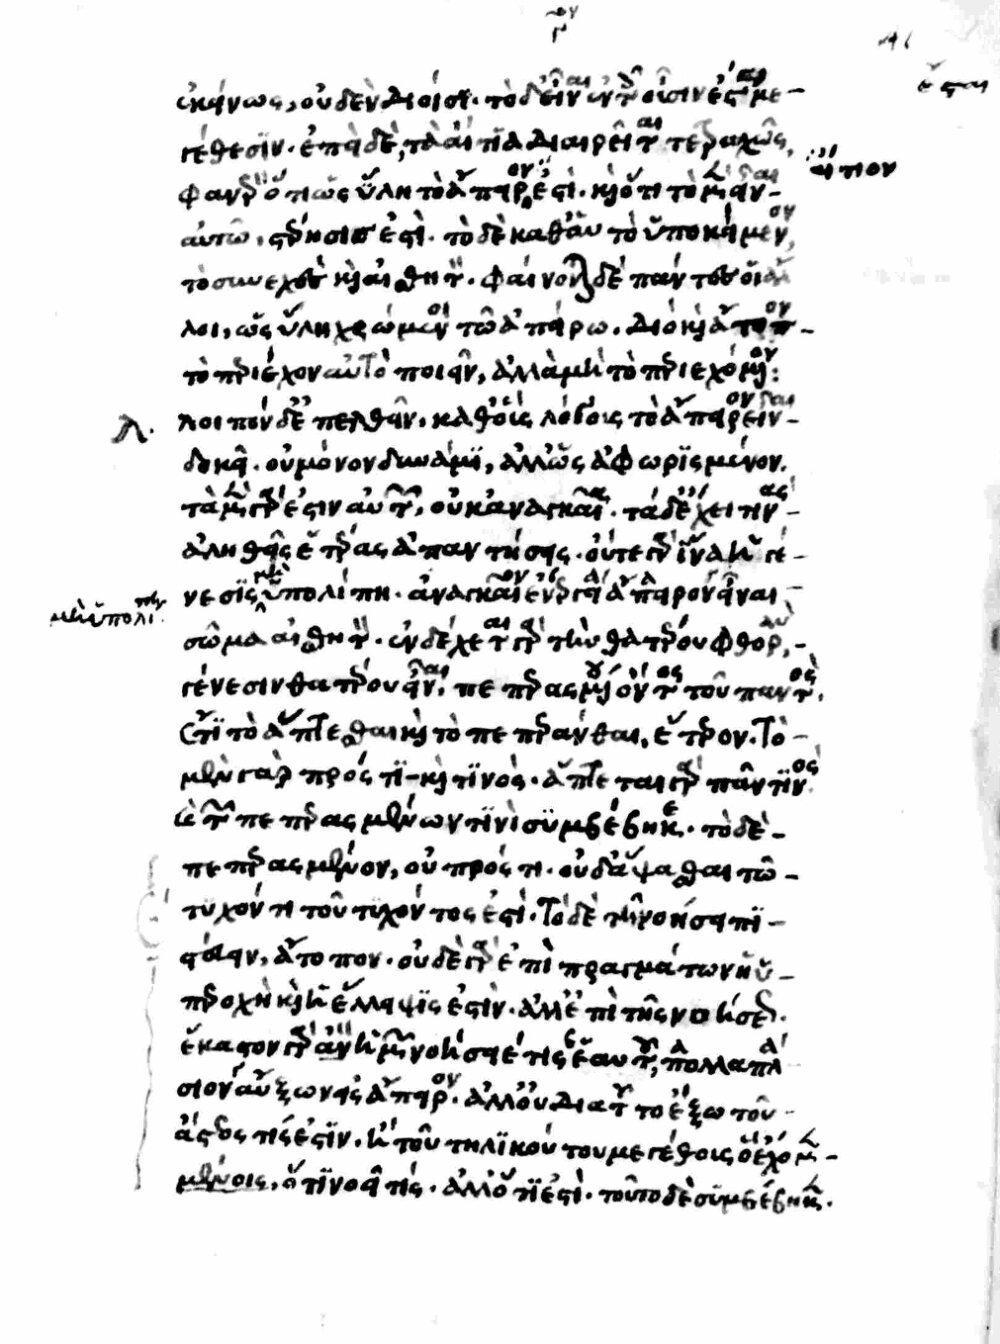 ἐκείνως, οὐδὲν διοίσει. τὸ δ' εἶναι ἐν τοῖς οὖσιν ἔσται με-
γέθεσιν. ἐπεὶ δὲ, τὰ αἴτια διαιρεῖται τετραχῶς,
φανερὸν ὅτι ὡς ὕλη τὸ ἄπειρόν ἐστι. καὶ ὅτι τὸ μὲν εἶναι
αὐτῶ, στέρησίς ἐστι. τὸ δὲ καθ' αὑτὸ ὑποκείμενον,
τὸ συνεχὲς καὶ αἰσθητόν. φαίνονται δὲ πάντες οἱ ἄλ
λοι, ὡς ὕλη χρώμενοι τῶ ἀπείρω. διὸ καὶ ἄτοπον
τὸ περιέχον αὐτὸ ποιεῖν, ἀλλὰ μὴ τὸ περιεχόμενον:
Λοιπὸν δ' ἐπελθεῖν, καθ' οὓς λόγους τὸ ἄπειρον εἶναι
δοκεῖ. οὐ μόνον δυνάμει, ἀλλ' ὡς ἀφωρισμένον.
τὰ μὲν γάρ ἐστιν αὐτῶν, οὐκ ἀναγκαῖα. τὰ δ' ἔχει τινὰς
ἀληθεῖς ἑτέρας ἀπαντήσεις. οὔτε γὰρ ἵνα ἡ γέ-
νεσις μὴ ὑπολίπη. ἀναγκαῖον ἐνεργεία ἄπειρον εἶναι
σῶμα αἰσθητόν. ἐνδέχεται γὰρ τὴν θατέρου φθορὰν,
γένεσιν θατέρου εἶναι, πεπερασμένου ὄντος τοῦ παντός.
ἔτι τὸ ἅπτεσθαι καὶ τὸ πεπεράνθαι, ἕτερον. τὸ
μὲν γὰρ πρός τι καὶ τινός. ἅπτεται γὰρ πᾶν τινός
καὶ τῶν πεπερασμένων τινὶ συμβέβηκε. τὸ δὲ
πεπερασμένον, οὐ πρός τι. οὐδ' ἅψασθαι τῶ
τυχόντι τοῦ τυχόντος ἐστί. τὸ δὲ τῆ νοήσει πι
στεύειν, ἄτοπον. οὐ γὰρ ἐπὶ τοῦ πράγματων ἡ ὑ-
περοχὴ καὶ ἡ ἔλλειψις ἐστίν. ἀλλ' ἐπὶ τῆς νοήσεως.
ἕκαστον γὰρ ἂν ἡμῶν νοήσειέ τις ἑαυτοῦ, πολλαπλα
σίον αὔξων εἰς ἄπειρον. ἀλλ' οὐ διὰ τοῦτο ἔξω τοῦ
ἄστεός τίς ἐστιν. ἢ τοῦ τηλικούτου μεγέθους ὃ ἔχομεν
ὅτι νοεῖ τίς. ἀλλ' ὅτι ἐστί. τοῦτο δὲ συμβέβηκεν.
ἔσται
αἴτιον
Λ.
μὴ ὑπολίπη